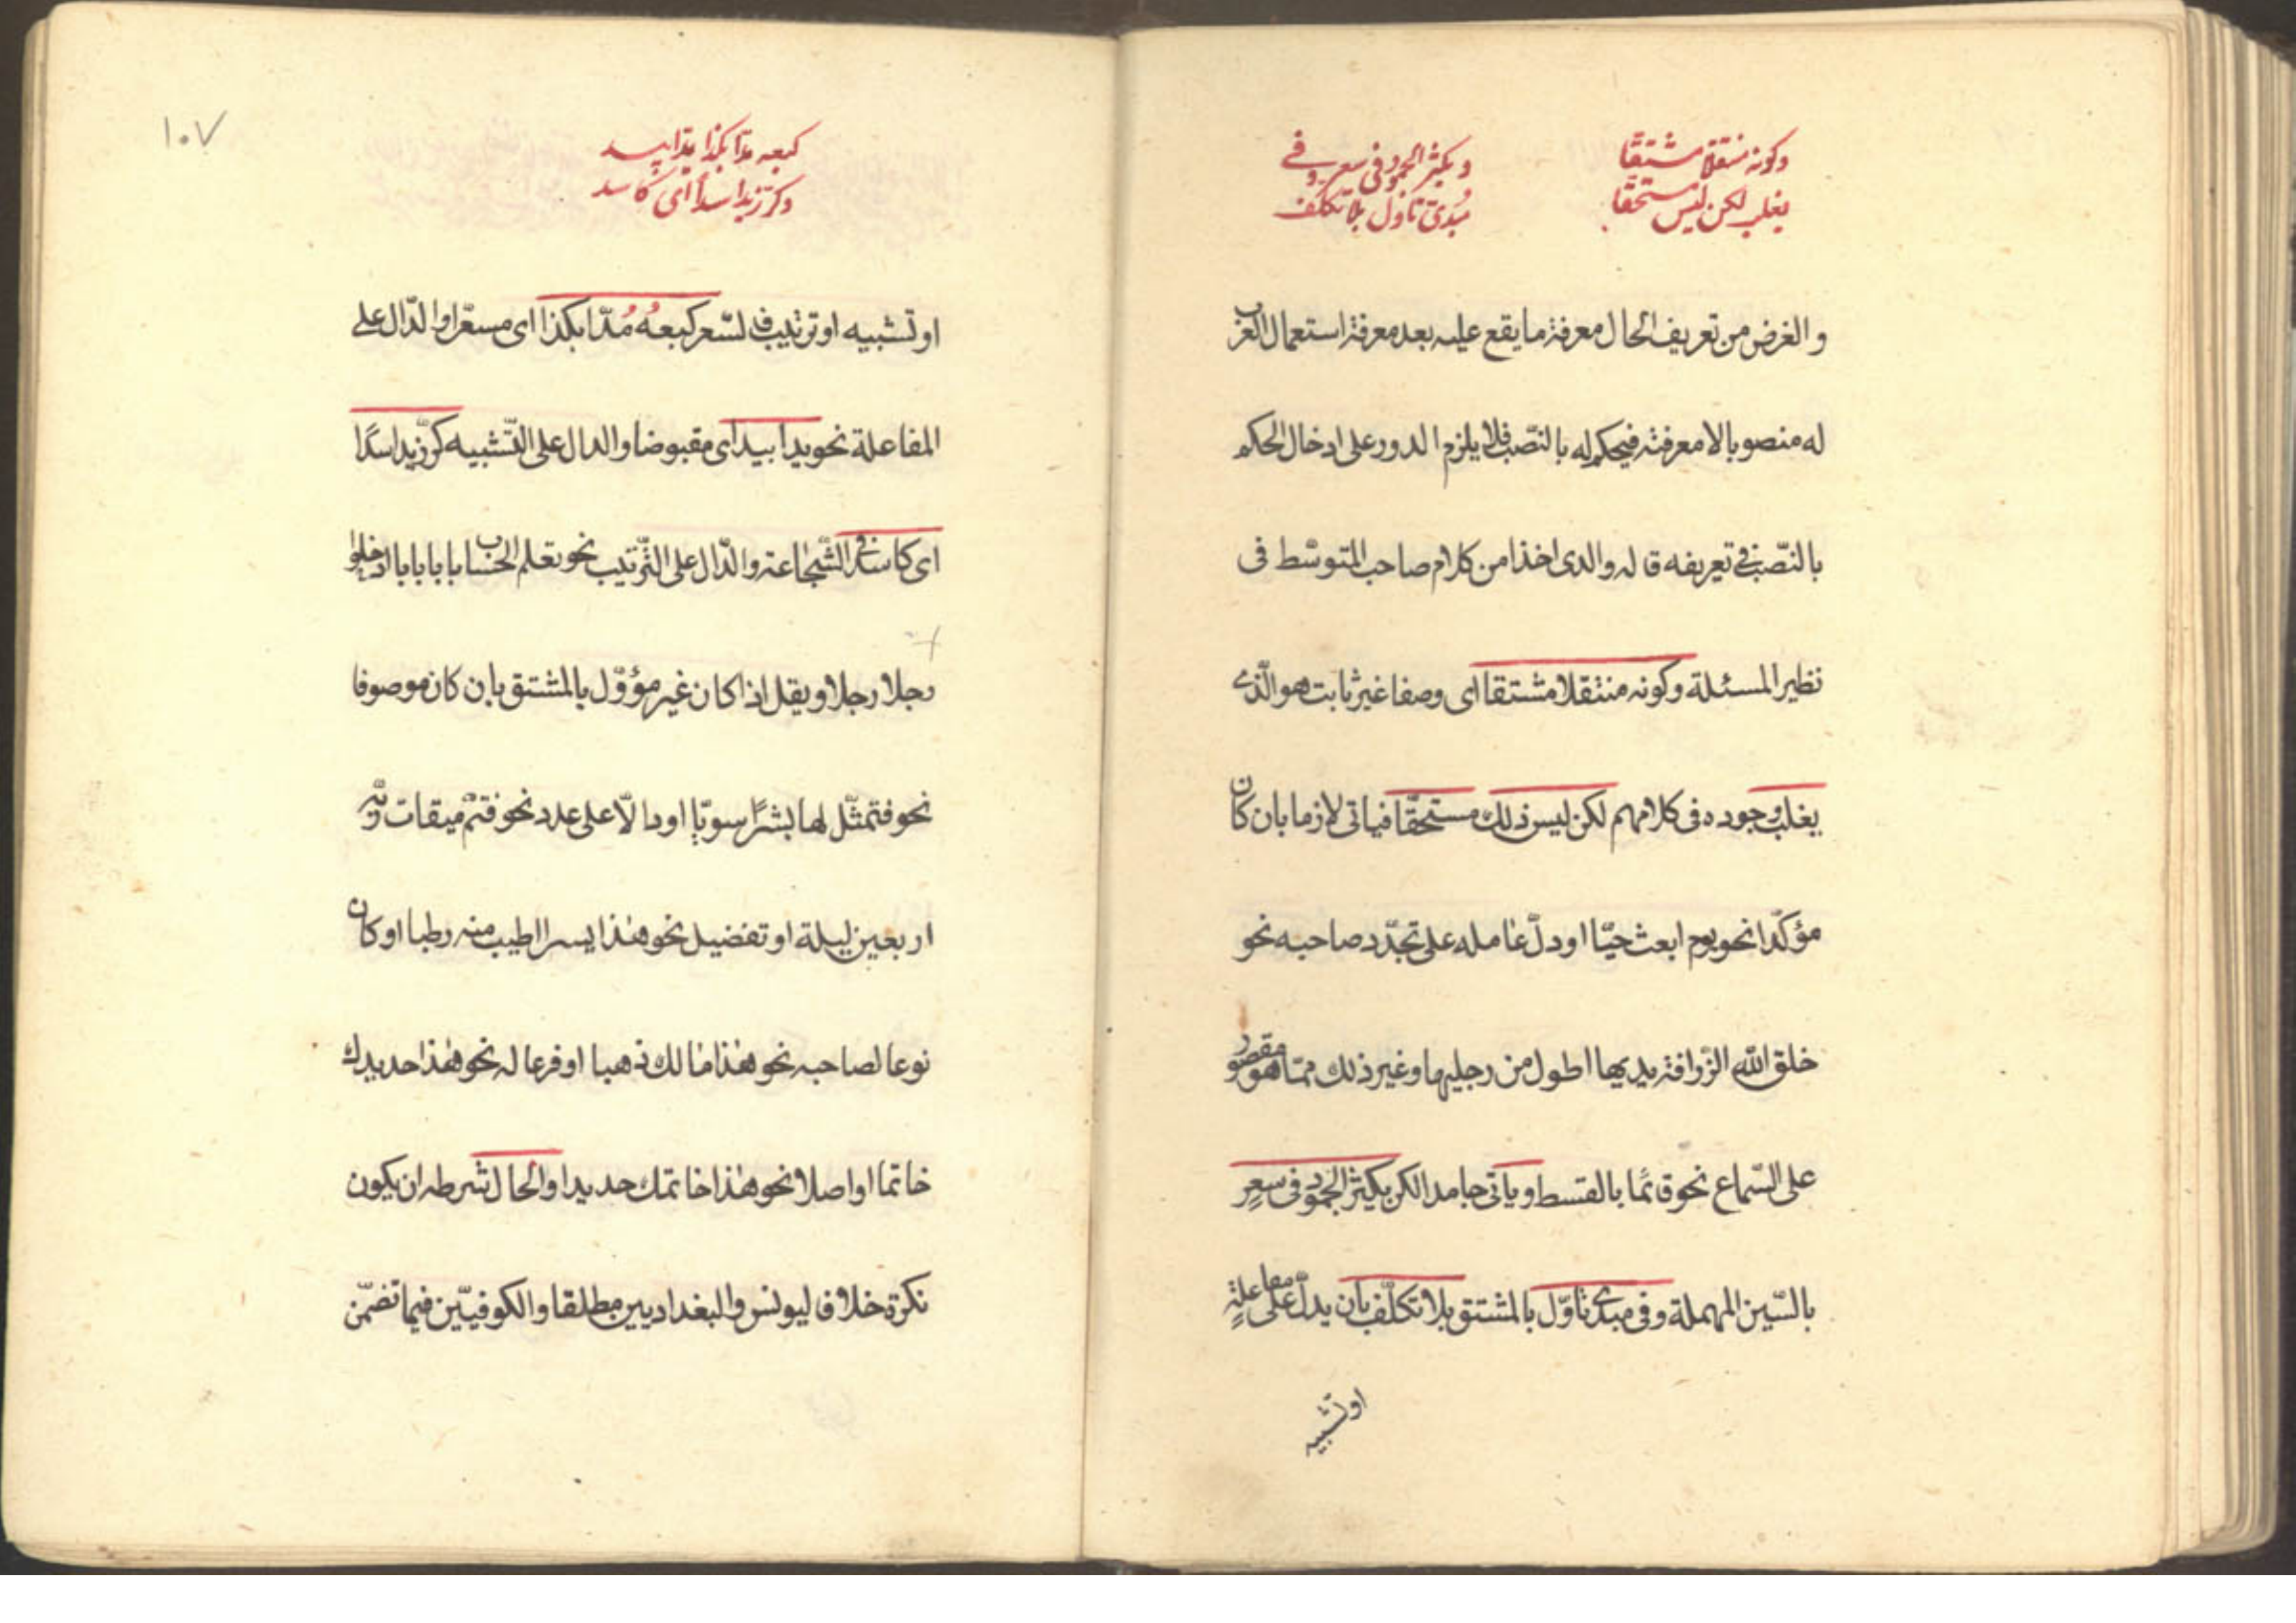 وكونه منتقلا مشتقا
يغلب لكن ليس مستحقا
ويكثر الجمود في سعر وفي
مبدي تاول بلا تكلف
والغرض من تعريف الحال معرفة ما يقع عليه بعد معرفة استعمال العرب
له منصوبا لا معرفته فيحكم له بالنّصب فلا يلزم الدور على ادخال الحكم
بالنّصب في تعريفه قاله والدى اخذا من كلام صاحب المتوسّط فى
نظير المسئلة وكونه منتقلا مشتقا اى وصفا غير ثابت هو الّذى
يغلب وجوده فى كلامهم لكن ليس ذلك مستحقّا فياتى لازما بان كان
مؤكّدا نحو يوم ابعث حيّا او دلّ عامله على تجدّد صاحبه نحو
خلق الله الزّرافة يديها اطول من رجليها وغير ذلك ممّا هو مقصور
على السّماع نحو قائمًا بالقسط وياتى جامدا لكن يكثر الجمود فى سعرٍ
بالسّين المهملة وفى مبدى تأوّل بالمشتق بلا تكلّف بأن يدلّ على مفاعلةٍ
او تشبيه
١٠٧
كبعه مدا بكذا يدا بيد
وكرّ زيد اسدا اى كاسد
او تشبيه او ترتيب فالسّعر كبعهُ مُدّا بكذا اى مسعّرا والدّال على
المفاعلة نحو يدا بيد اى مقبوضا والدال على التّشبيه كرّ زيد اسدًا
اى كاسد فى الشّجاعة والدّال على التّرتيب نحو تعلم الحساب بابا بابا ادخلوا
رجلا رجلا ويقل اذا كان غير مؤوّل بالمشتق بان كان موصوفا
نحو فتمثّل لها بشرًا سويّا او دالّا على عدد نحو فتم ميقات ربّه
اربعين ليلة او تفضيل نحو هذا بسرا اطيب منه رطبا او كان
نوعا لصاحبه نحو هذا مالك ذهبا او فرعا له نحو هذا حديدك
خاتما او اصلا نحو هذا خاتمك حديدا والحال شرطه ان يكون
نكرة خلافا ليونس والبغداديين مطلقا والكوفيّين فيما تضمّن